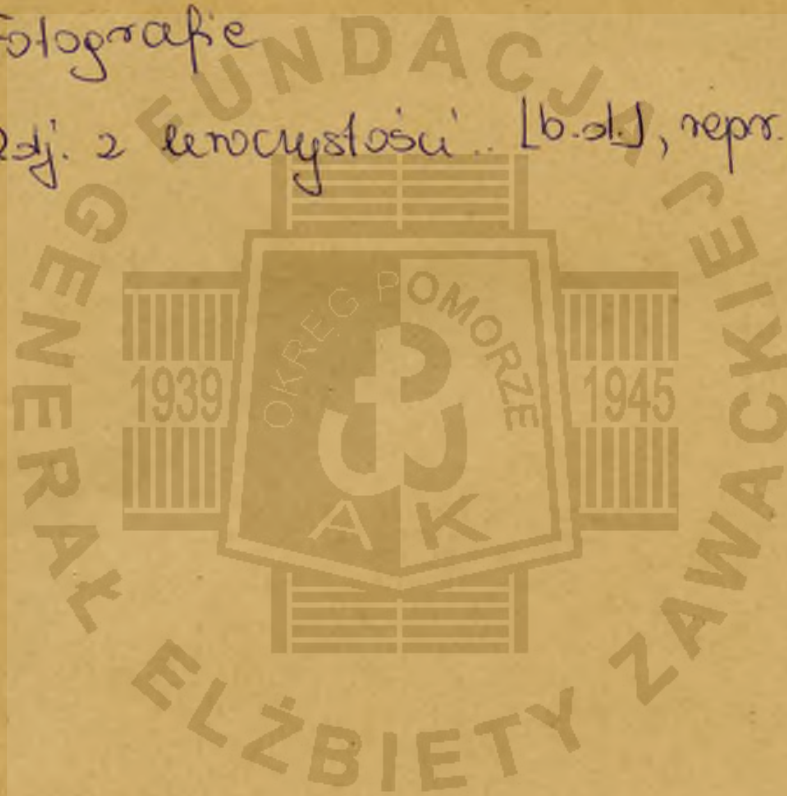 Fotografie
Zdj. z uroczystości.. [b.d.], repr.
FUNDACJA GENERAŁ ELŻBIETY ZAWACKIEJ
OKRĘG POMORZE
1939
1945
AK